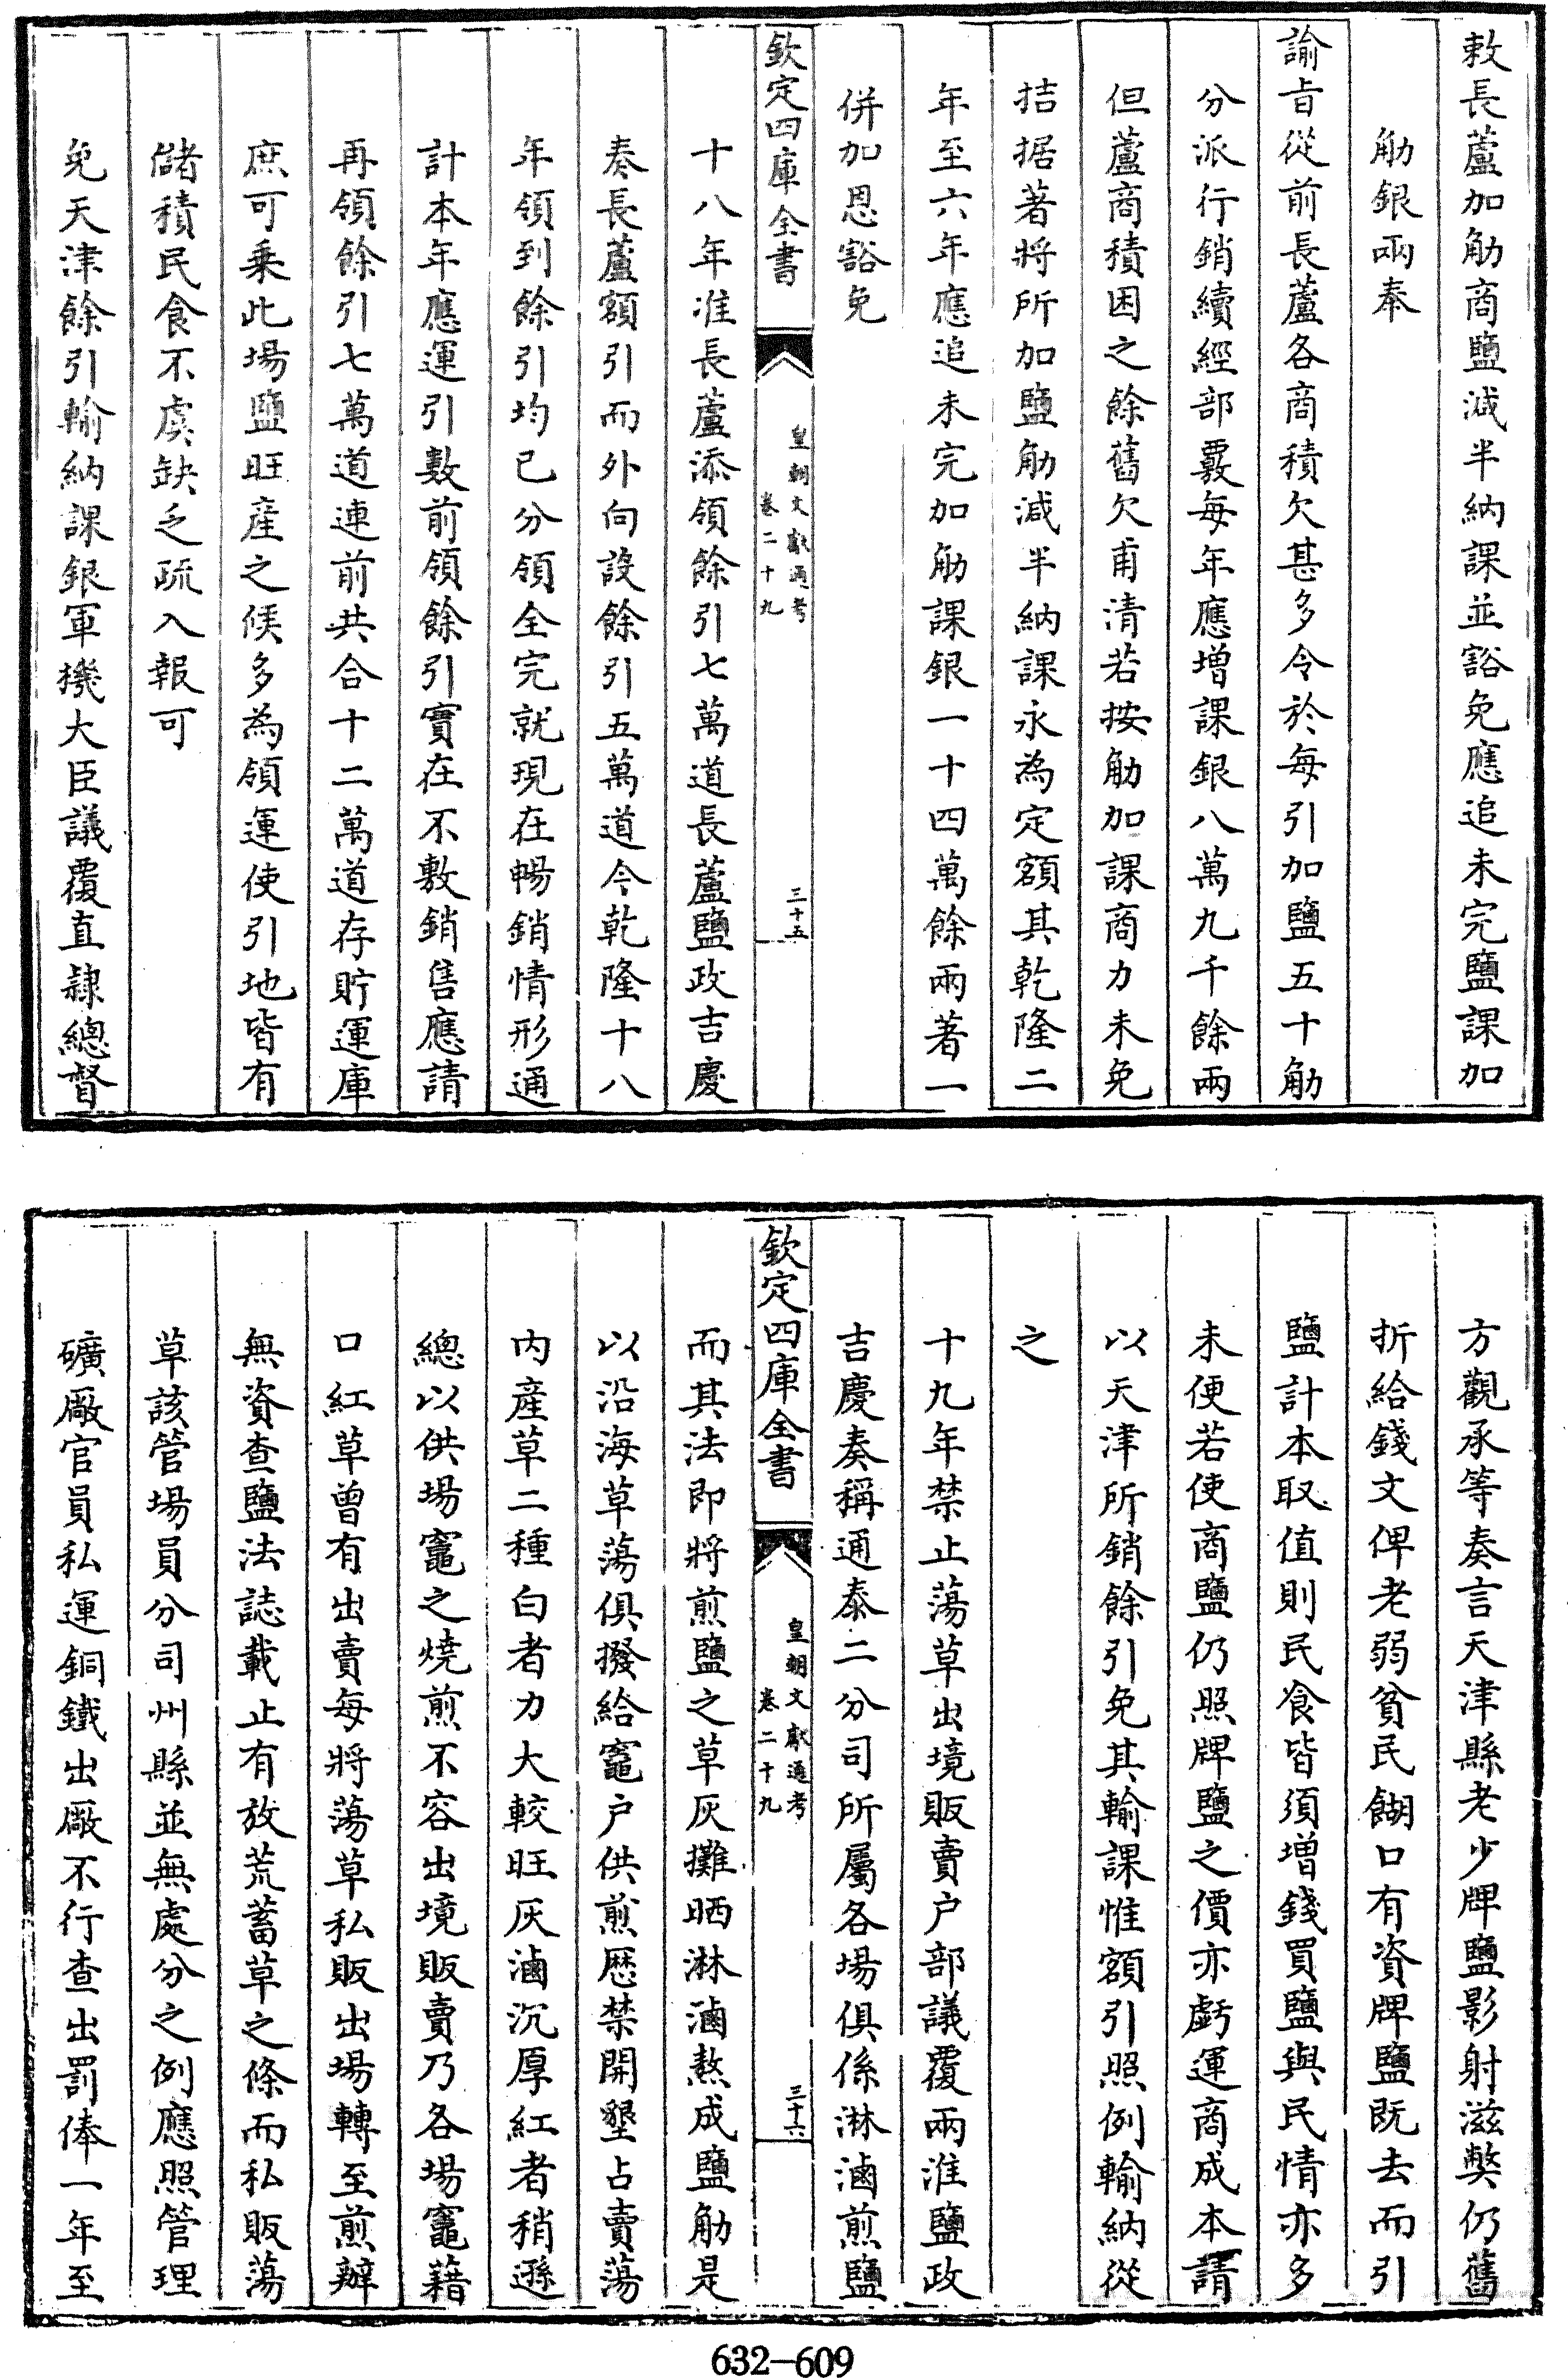 敕長蘆加觔商鹽減半納課並豁免應追未完鹽課加
觔銀兩奉
諭旨從前長蘆各商積欠甚多令於每引加鹽五十觔
分派行銷續經部覈每年應增課銀八萬九千餘兩
但蘆商積困之餘舊欠甫清若按觔加課商力未免
拮据著將所加鹽觔減半納課永為定額其乾隆二
年至六年應追未完加觔課銀一十四萬餘兩著一
併加恩豁免
欽定四庫全書
皇朝文獻通考
卷二十九
三十五
十八年准長蘆添領餘引七萬道長蘆鹽政吉慶
奏長蘆額引而外向設餘引五萬道今乾隆十八
年領到餘引均已分領全完就現在暢銷情形通
計本年應運引數前領餘引實在不敷銷售應請
再領餘引七萬道連前共合十二萬道存貯運庫
庶可乗此場鹽旺産之候多為領運使引地皆有
儲積民食不虞缺乏疏入報可
免天津餘引輸納課銀軍機大臣議覆直隷總督
方觀承等奏言天津縣老少牌鹽影射滋弊仍舊
折給錢文俾老弱貧民餬口有資牌鹽既去而引
鹽計本取值則民食皆須增錢買鹽與民情亦多
未便若使商鹽仍照牌鹽之價亦虧運商成本請
以天津所銷餘引免其輸課惟額引照例輸納從
之
十九年禁止蕩草出境販賣户部議覆兩淮鹽政
吉慶奏稱通泰二分司所屬各場俱係淋滷煎鹽
欽定四庫全書
皇朝文獻通考
卷二十九
三十六
而其法即將煎鹽之草灰攤晒淋滷熬成鹽觔是
以沿海草蕩俱撥給竈户供煎歴禁開墾占賣蕩
内産草二種白者力大較旺灰滷沉厚紅者稍遜
總以供場竈之燒煎不容出境販賣乃各場竈藉
口紅草曾有出賣每將蕩草私販出場轉至煎辦
無資查鹽法誌載止有放荒蓄草之條而私販蕩
草該管場員分司州縣並無處分之例應照管理
礦厰官員私運銅鐵出厰不行查出罰俸一年至
632-609